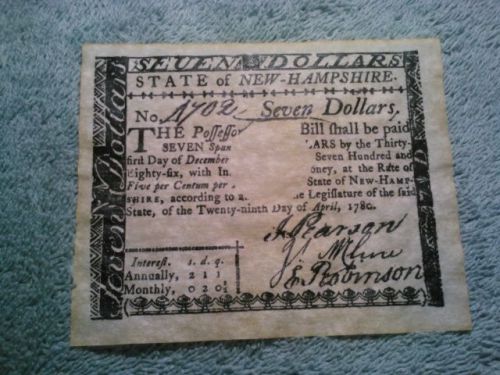 SEVEN DOLLARS
STATE of NEW-HAMPSHIRE.
No. 1702 Seven Dollars,
THE Possessor Bill shall be paid
SEVEN Span LARS by the Thirty-
first Day of December Seven Hundred and
Eighty-six, with In oney, at the Rate of
Five per Centum per State of NEW-HAMP-
SHIRE, according to a e Legislature of the said
State, of the Twenty-ninth Day of April, 1780.
J Pearson
J McClure
E Robinson
Interest. s. d. q.
Annually, 2 1 1
Monthly, 0 2 0½
Seven Dollars